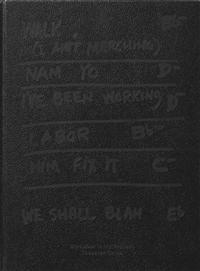 WALK,
(I AIN'T MARCHING) Bb-
NAM YO D-
I'VE BEEN WORKING D-
LABOR Bb-
HIM FIX IT C-
WE SHALL BLAH Eb